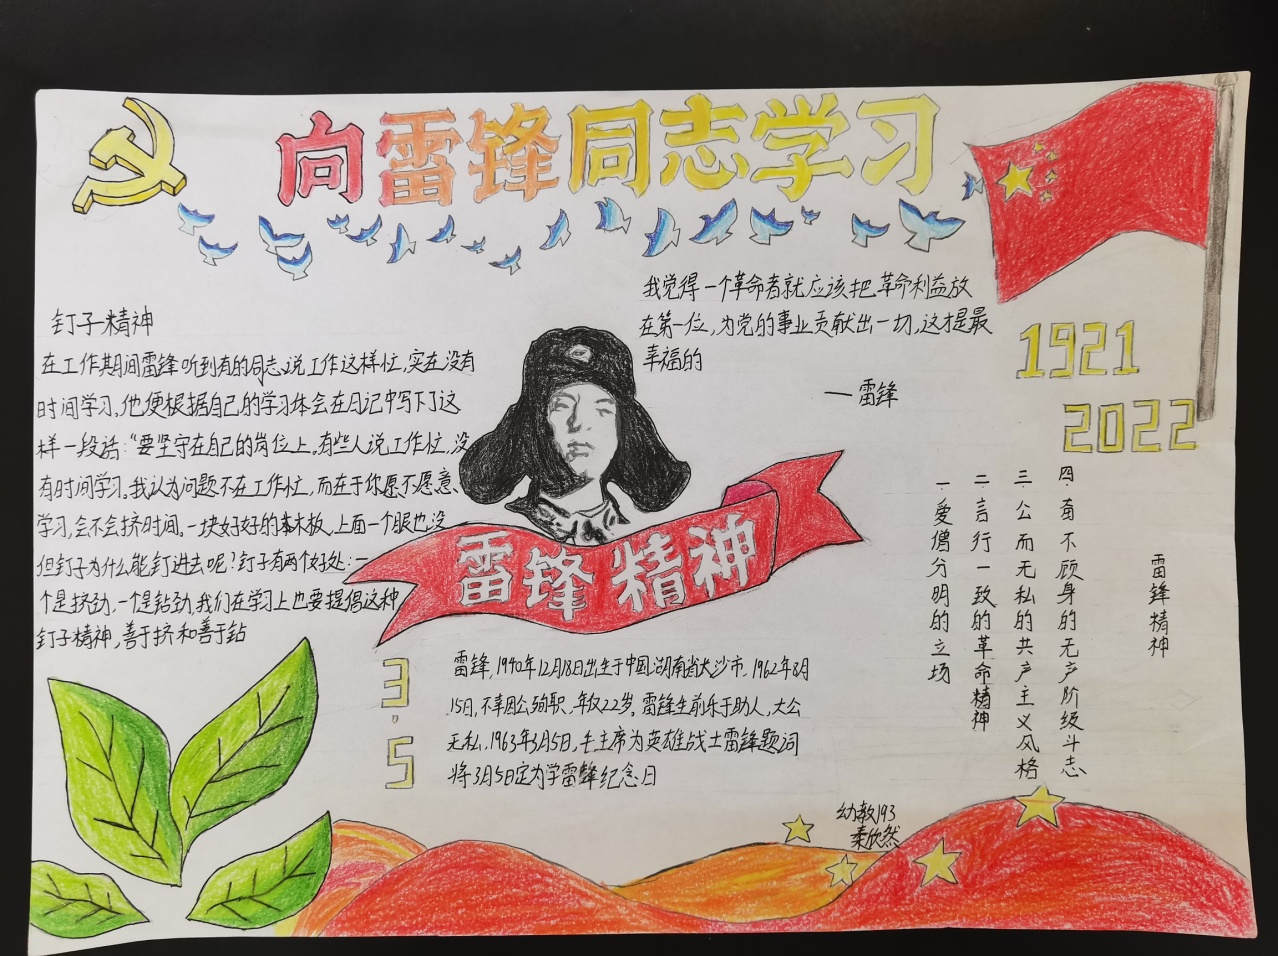 向雷锋同志学习
我觉得一个革命者就应该把革命利益放
在第一位,为党的事业贡献出一切,这才是最
幸福的
—雷锋
钉子精神
在工作期间雷锋听到有的同志说工作这样忙,实在没有
时间学习,他便根据自己的学习体会在日记中写下了这
样一段话:“要坚守在自己的岗位上。有些人说工作忙,没
有时间学习。我认为问题不在工作忙,而在于你愿不愿意、
学习,会不会挤时间。一块好好的木板,上面一个眼也没
但钉子为什么能钉进去呢?钉子有两个好处:一
个是挤劲,一个是钻劲,我们在学习上也要提倡这种
钉子精神,善于挤和善于钻
雷锋精神
1921
2022
雷锋精神
四.奋不顾身的无产阶级斗志
三.公而无私的共产主义风格
二.言行一致的革命精神
一爱憎分明的立场
3.5
雷锋,1940年12月18日出生于中国湖南省大沙市.1962年8月
15日,不幸因公殉职.年仅22岁。雷锋生前乐于助人,大公
无私.1963年3月5日,毛主席为英雄战士雷锋题词
将3月5日定为学雷锋纪念日
幼教193
秦欣然